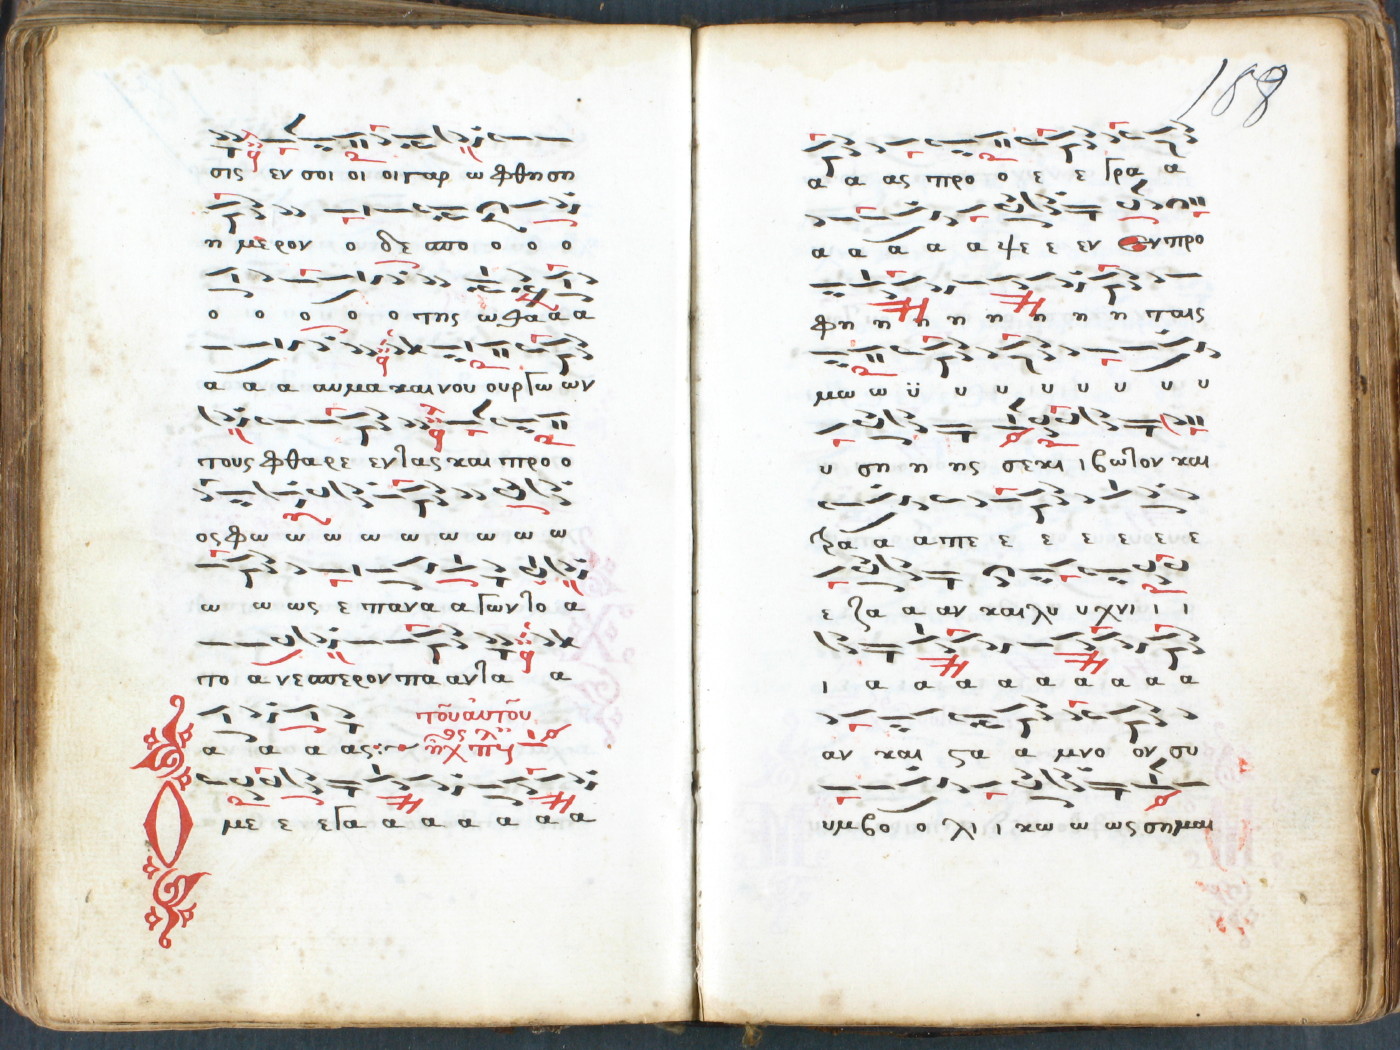 σις εν σοι οι οι γαρ ω φθη ση
η μερον ο δε απο ο ο ο
ο ο ο ο ο της ω θα α α
α α α αυμα και νου ουργω ων
τους φθαρε εντας και προ ο
ος φω ω ω ω ω ω ω ω ω
ω ω ως επανα α γωντο α
πο α νεσπερον πα αντα α
α α α ας
του αυτου
ηχ πλ
Ο με ε ετα α α α α α α
188
α α ας προ ο ε ε γρα α
α α α α α ψε ε εν εν προ
φη η η η η η η η ταις
μω ω ϋ υ υ υ υ υ υ υ
υ ση η ης σε κι ι βωτον και
ρα α απε ε ε ε ε ε ε
ε ζα α αν και λυ υ χνι ι ι
ι α α α α α α α α
αν και στα α μνο ον συ
υμβο ο λι ι κω ω ως σημαι